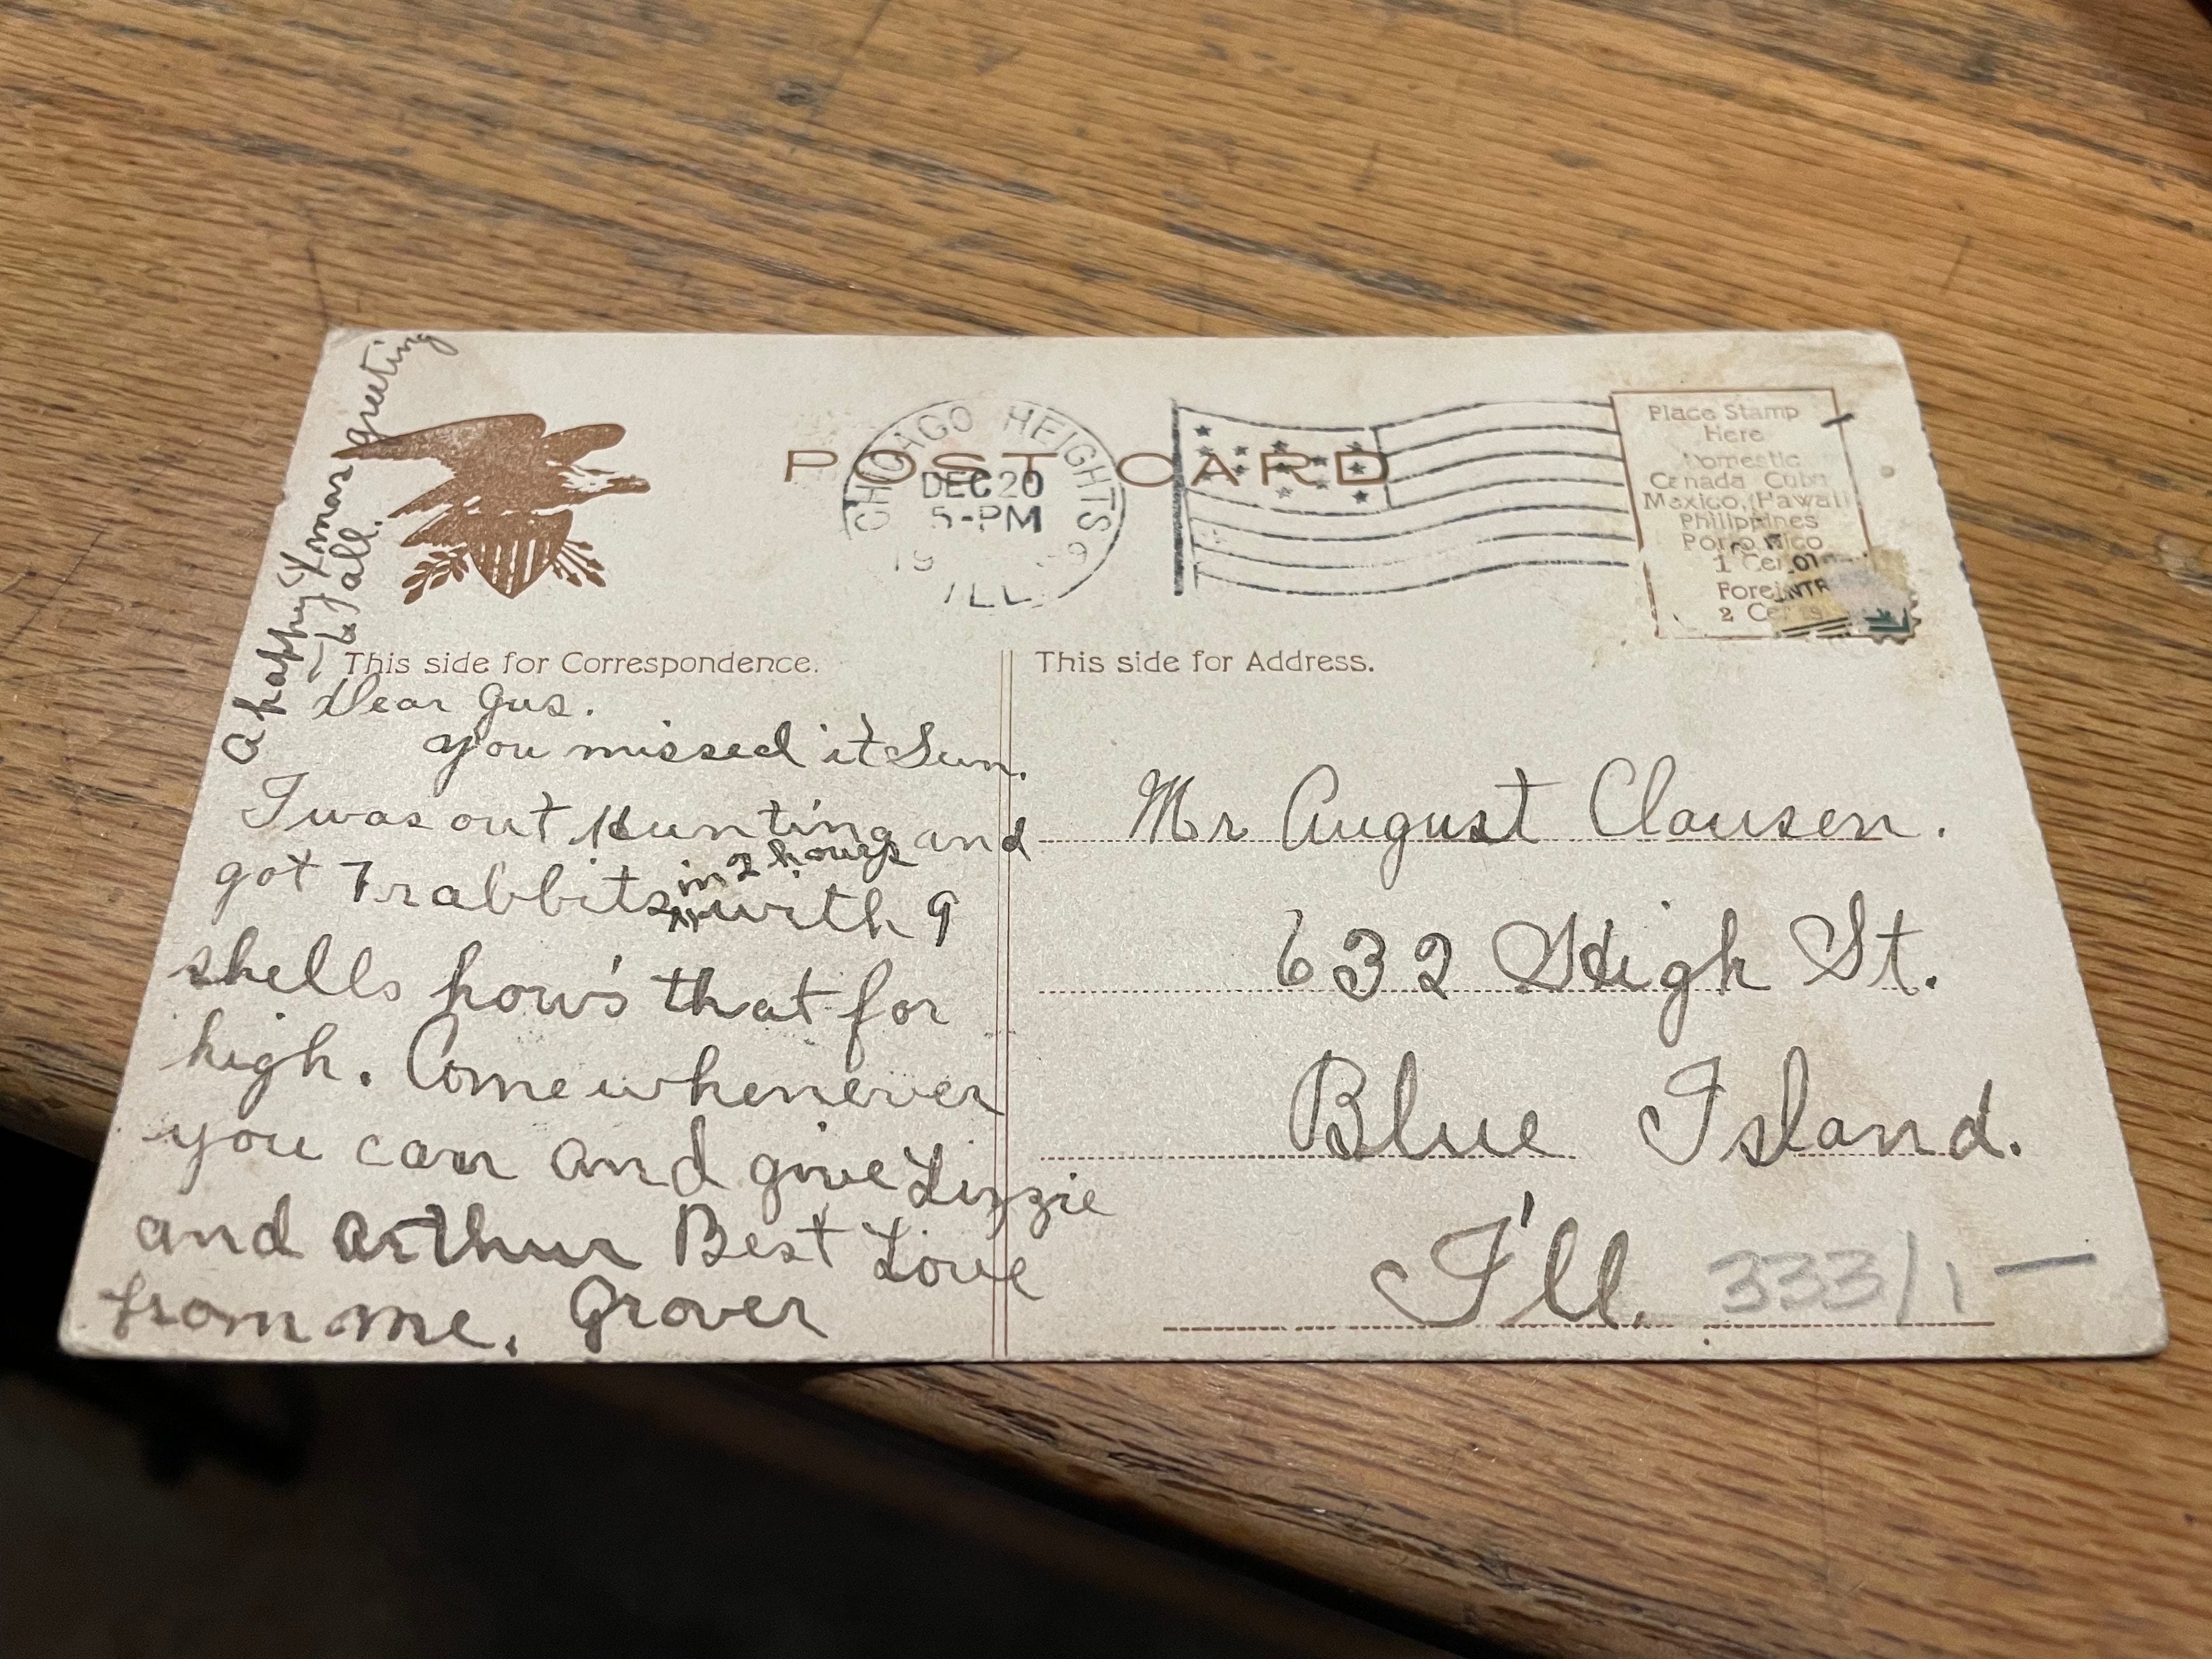 A happy Xmas greeting
to all.
POST CARD
CHICAGO HEIGHTS
DEC 20
5-PM
19
ILL.
Place Stamp
Here
Domestic
Canada Cuba
Mexico, (Hawaii
Philippines
Porto Rico
1 Cent
Foreign
2 Cents
This side for Correspondence.
Dear Gus.
you missed it Sun.
I was out Hunting and
in 2 hours
got 7 rabbits with 9
shells how's that for
high. Come whenever
you can and give Lizzie
and Arthur Best Love
from me. Grover
This side for Address.
Mr August Clausen.
632 High St.
Blue Island.
I'll.
333/1-